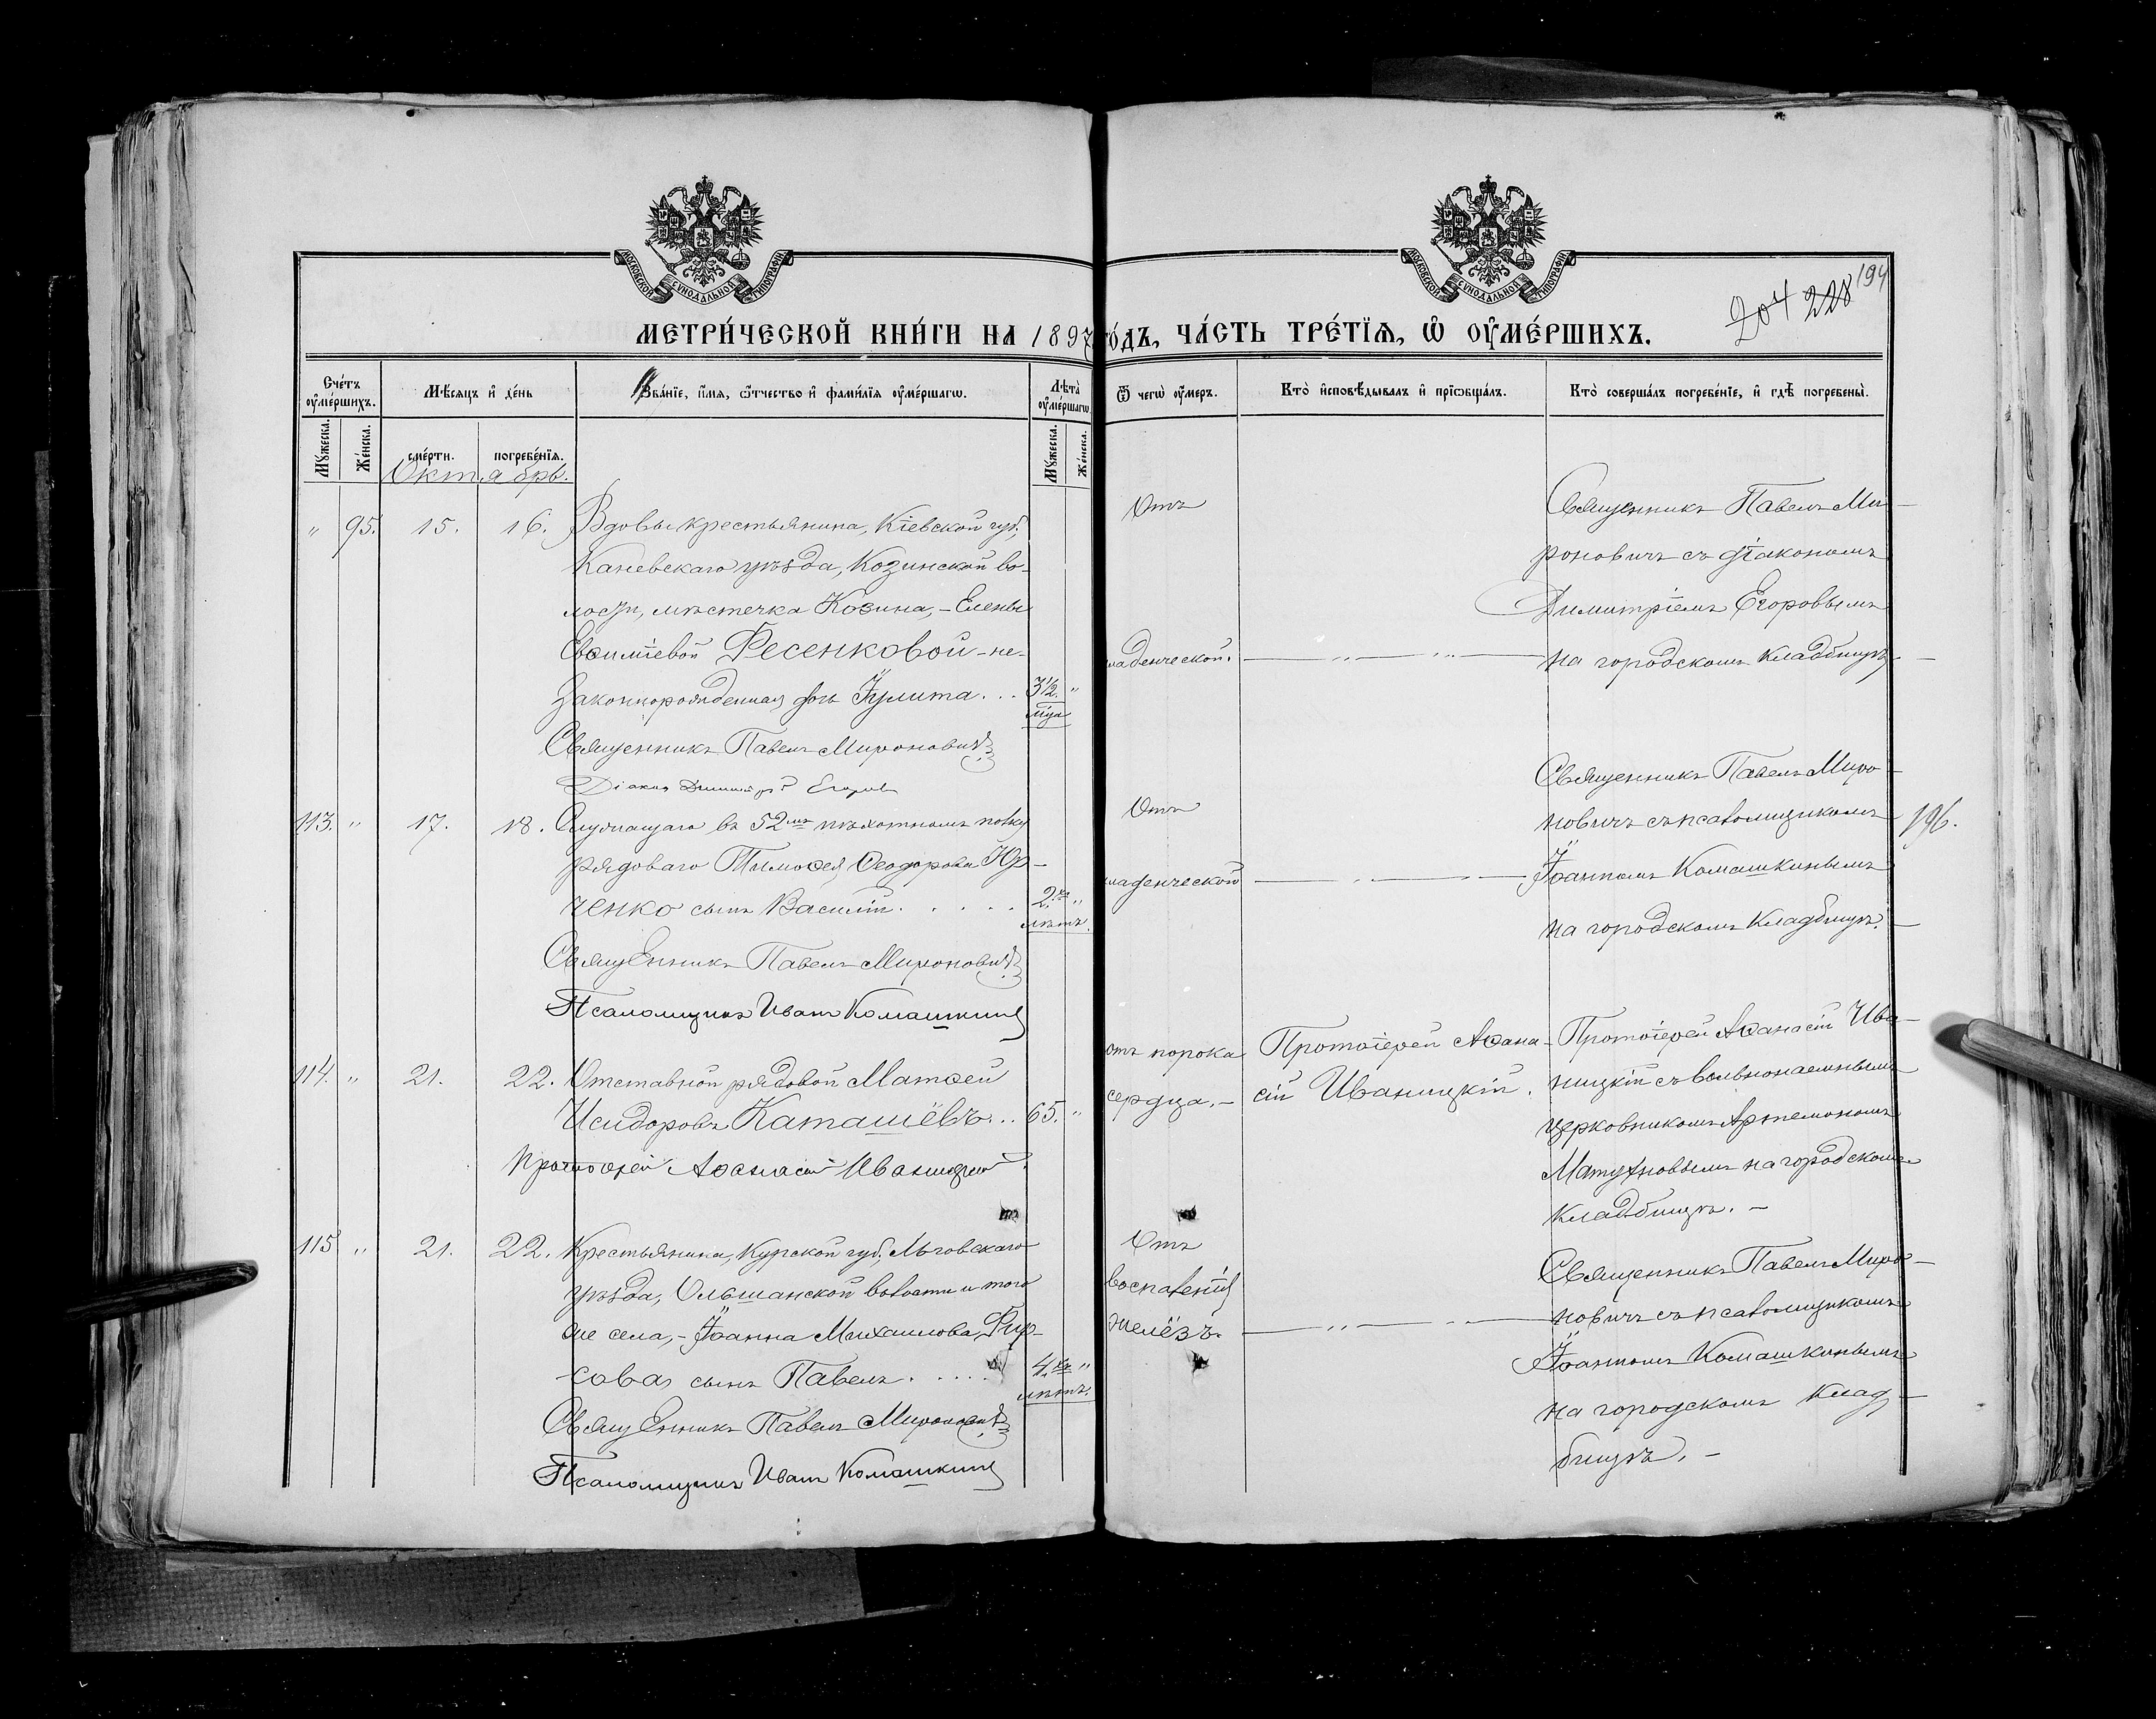 МОСКОВСКОЙ СѴНОДАЛЬНОЙ ТИПОГРАФІИ
МОСКОВСКОЙ СѴНОДАЛЬНОЙ ТИПОГРАФІИ
204 228 194
МЕТРИ́ЧЕСКОЙ КНИ́ГИ НА 1897 ГО́ДЪ, ЧА́СТЬ ТРЕ́ТІѦ, Ѡ҆ ОУ҆МЕ́РШИХЪ.
Сче́тъ оу҆ме́ршихъ.
Мѣ́сяцъ и҆ де́нь
Зва́нїе, и҆́мя, ѻ҆́тчество и҆ фами́лїя оу҆ме́ршагѡ.
Лѣ́та оу҆ме́ршагѡ.
Ѿ чегѡ̀ оу҆́меръ.
Кто̀ и҆сповѣ́дывалъ и҆ прїѡбща́лъ.
Кто̀ соверша́лъ погребе́нїе, и҆ гдѣ̀ погребены̀.
Мꙋ́жеска. Же́нска. сме́рти. погребе́нїя. Мꙋ́жеска. Же́нска.
Октябрь.
" 95. 15. 16. Вдовы крестьянина, Кіевской губ.,
Каневскаго уѣзда, Козинской во-
лости, мѣстечка Козина, - Елены
Евѳиміевой Фесенковой - не-
законнорожденная дочь Іулита . . . 3½ "
мца
Священникъ Павелъ Мироновичъ
Діаконъ Димитрій Егоровъ
Отъ
младенческой.
Священникъ Павелъ Ми-
роновичъ съ діакономъ
Димитріемъ Егоровымъ
на городскомъ кладбищѣ. -
113. " 17. 18. Служащаго въ 52мъ пѣхотномъ полку
рядоваго Тимоѳея Ѳеодорова Юр-
ченко сынъ Василій . . . . . 2.хъ "
лѣтъ.
Священникъ Павелъ Мироновичъ
Псаломщикъ Иванъ Комашкинъ
Отъ
младенческой
Священникъ Павелъ Миро-
новичъ съ псаломщикомъ
Іоанномъ Комашкинымъ
на городскомъ кладбищѣ. -
196.
114. " 21. 22. Отставной рядовой Матѳей
Исидоровъ Каташёвъ . . . 65. "
Протоіерей Аѳанасій Иваницкій.
отъ порока
сердца. -
Протоіерей Аѳана-
сій Иваницкій.
Протоіерей Аѳанасій Ива-
ницкій съ вольнонаемнымъ
церковникомъ Артемономъ
на городскомъ
кладбищѣ. -
115 " 21. 22. Крестьянина, Курской губ., Льговскаго
уѣзда, Ольшанской волости и того
же села, - Іоанна Михаилова Фир-
сова сынъ Павелъ . . . . . 4.хъ "
лѣтъ.
Священникъ Павелъ Мироновичъ
Псаломщикъ Иванъ Комашкинъ
Отъ
воспаленія
желёзъ.
Священникъ Павелъ Миро-
новичъ съ псаломщикомъ
Іоанномъ Комашкинымъ
на городскомъ клад-
бищѣ. -